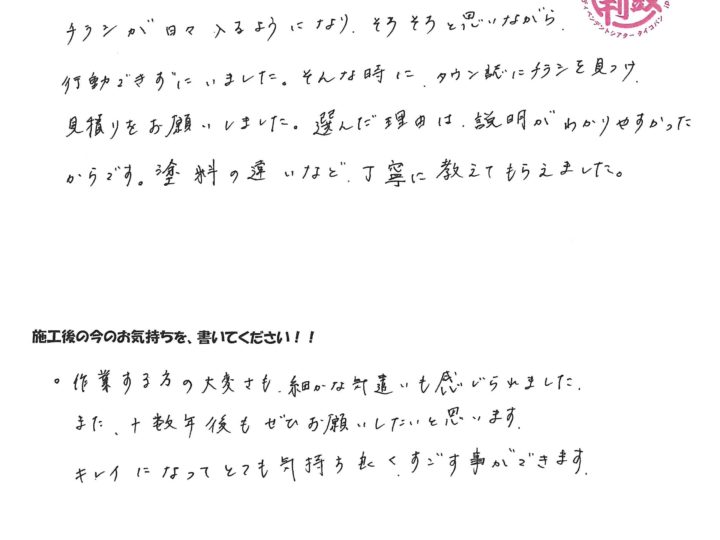 チラシが日々入るようになり、そろそろと思いながら、
行動できずにいました。そんな時に、タウン誌にチラシを見つけ、
見積りをお願いしました。選んだ理由は、説明がわかりやすかった
からです。塗料の違いなど、丁寧に教えてもらえました。
施工後の今のお気持ちを、書いてください！！
。作業する方の大変さも、細かな気遣いも感じられました。
また、十数年後もぜひお願いしたいと思います。
キレイになってとても気持ち良く、すごす事ができます。